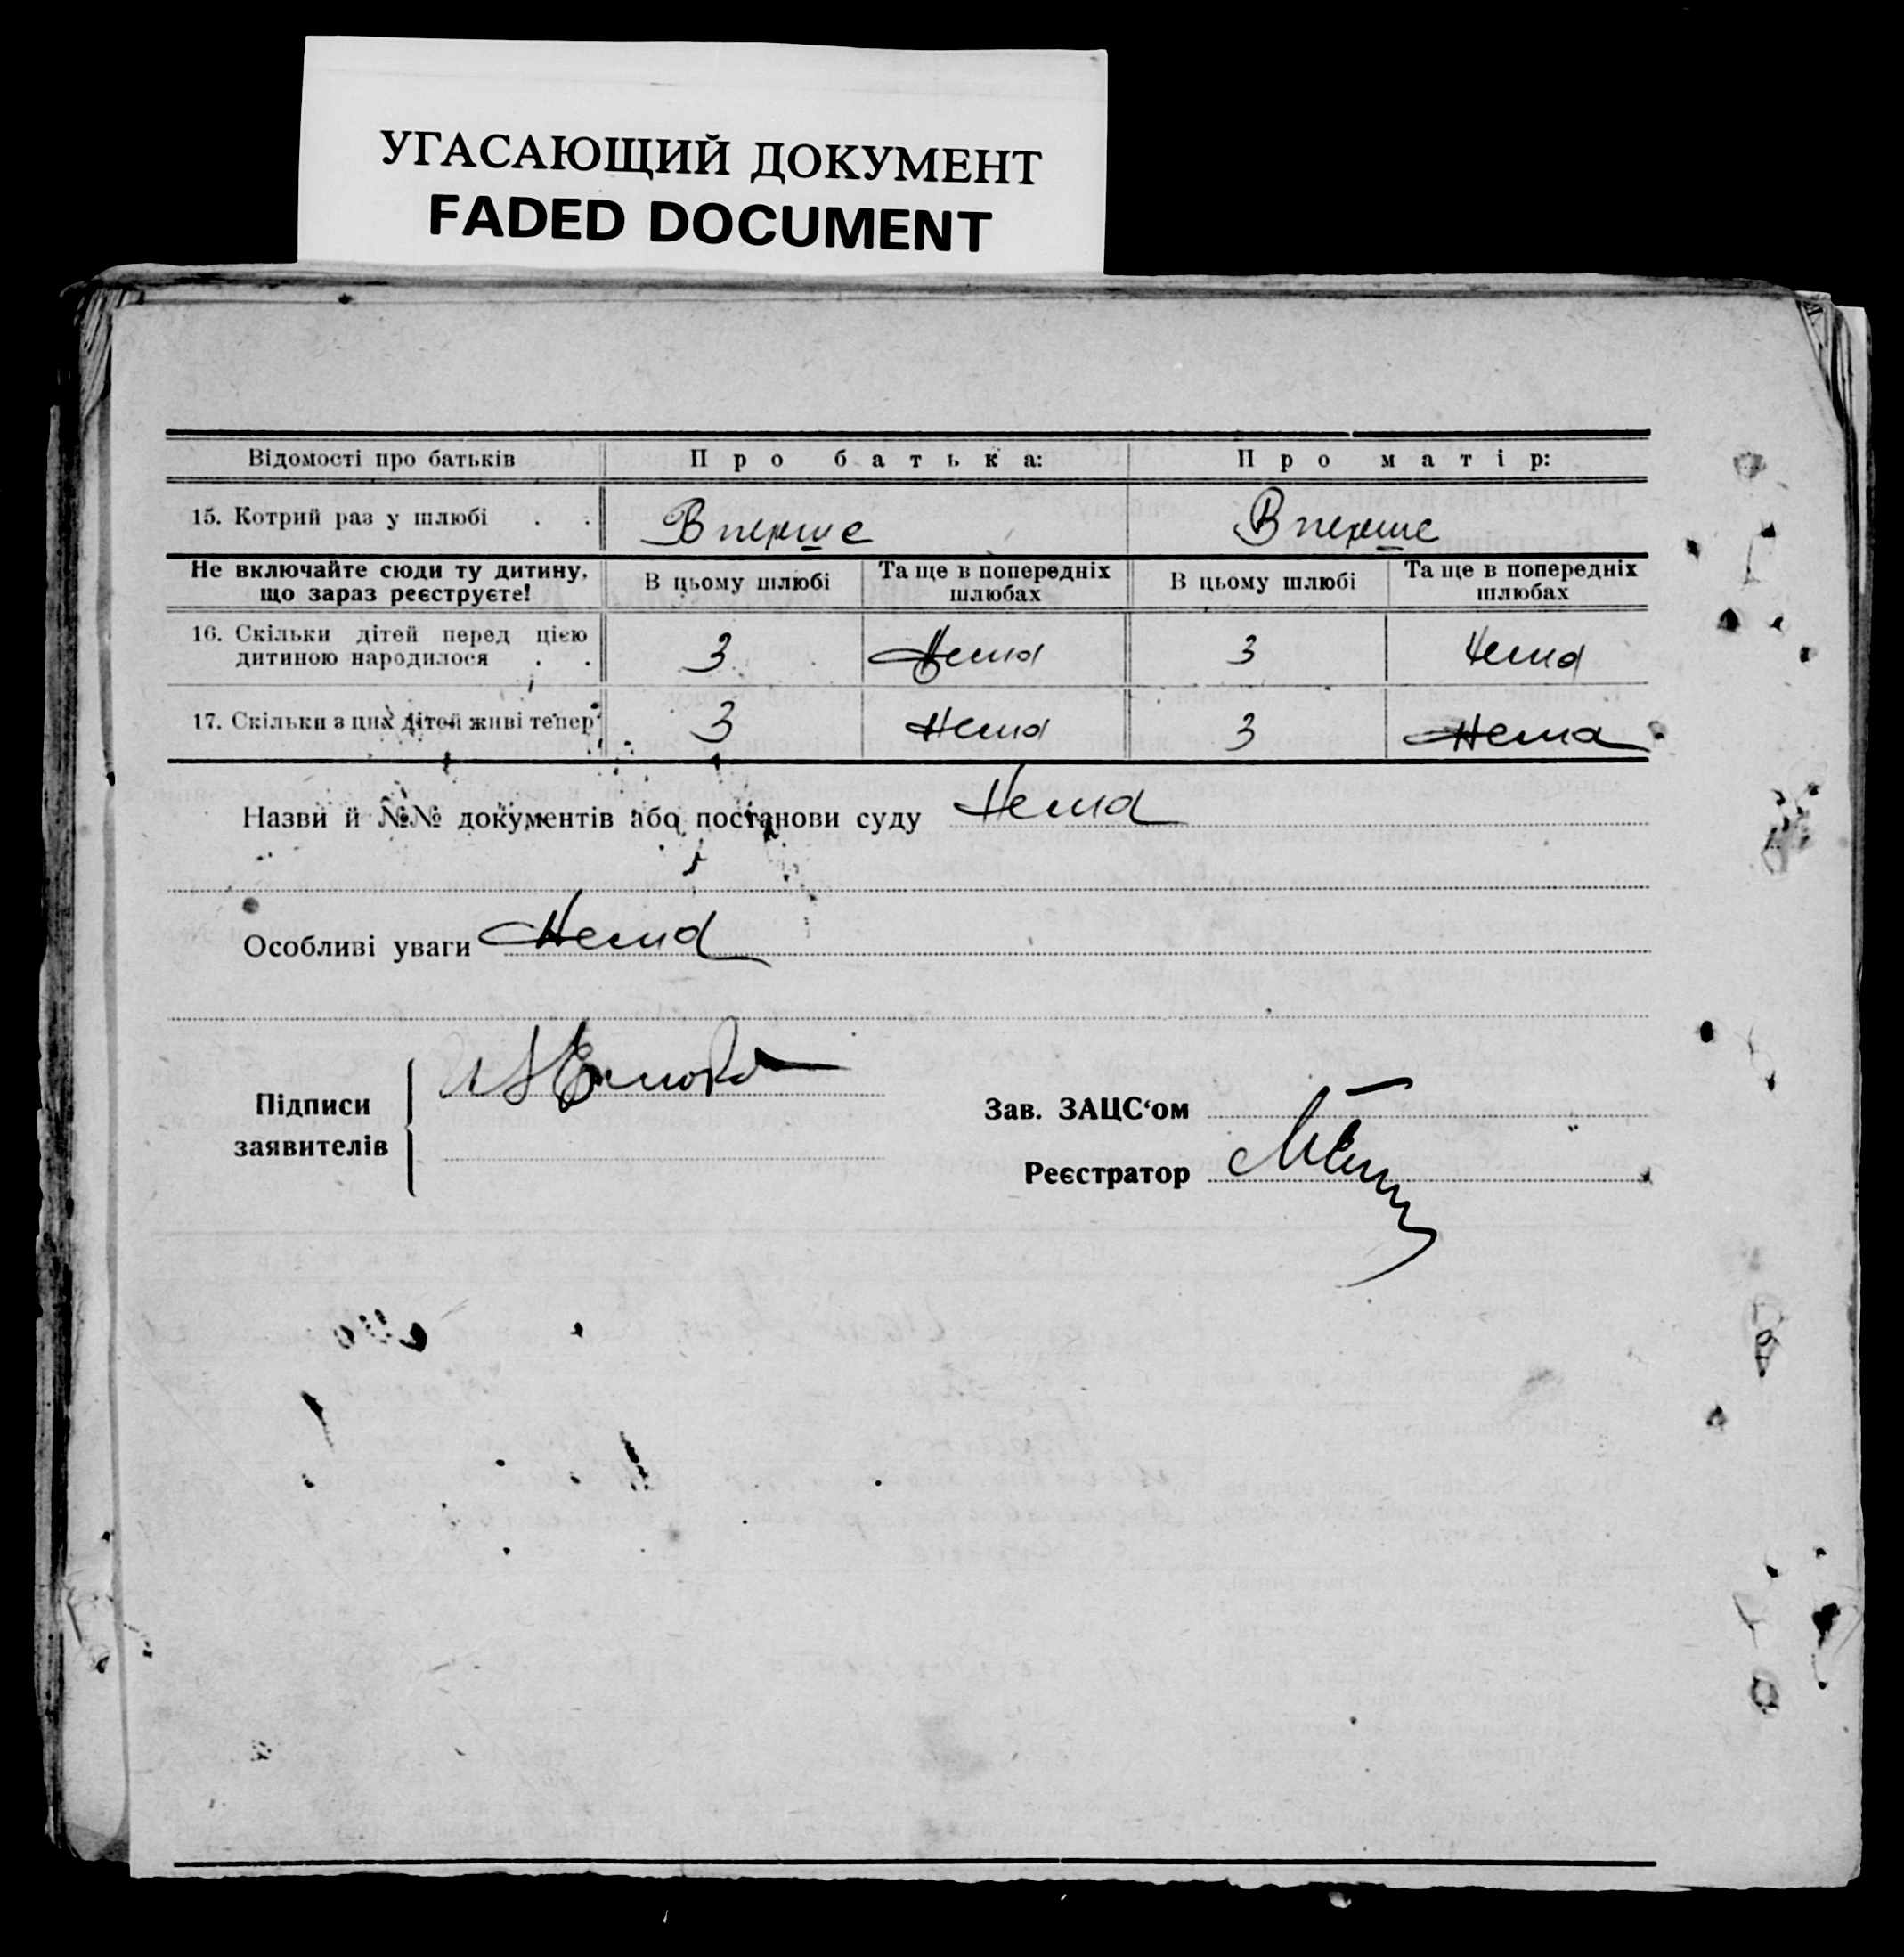 УГАСАЮЩИЙ ДОКУМЕНТ
FADED DOCUMENT
Відомості про батьків Про батька: Про матір:
15. Котрий раз у шлюбі . . Вперше Вперше
Не включайте сюди ту дитину, що зараз реєструєте! В цьому шлюбі Та ще в попередніх шлюбах В цьому шлюбі Та ще в попередніх шлюбах
16. Скільки дітей перед цією дитиною народилося . . 3 Нема 3 Нема
17. Скільки з цих дітей живі тепер 3 Нема 3 Нема
Назви й №№ документів або постанови суду Нема
Особливі уваги Нема
Підписи заявителів
Зав. ЗАЦС‘ом
Реєстратор